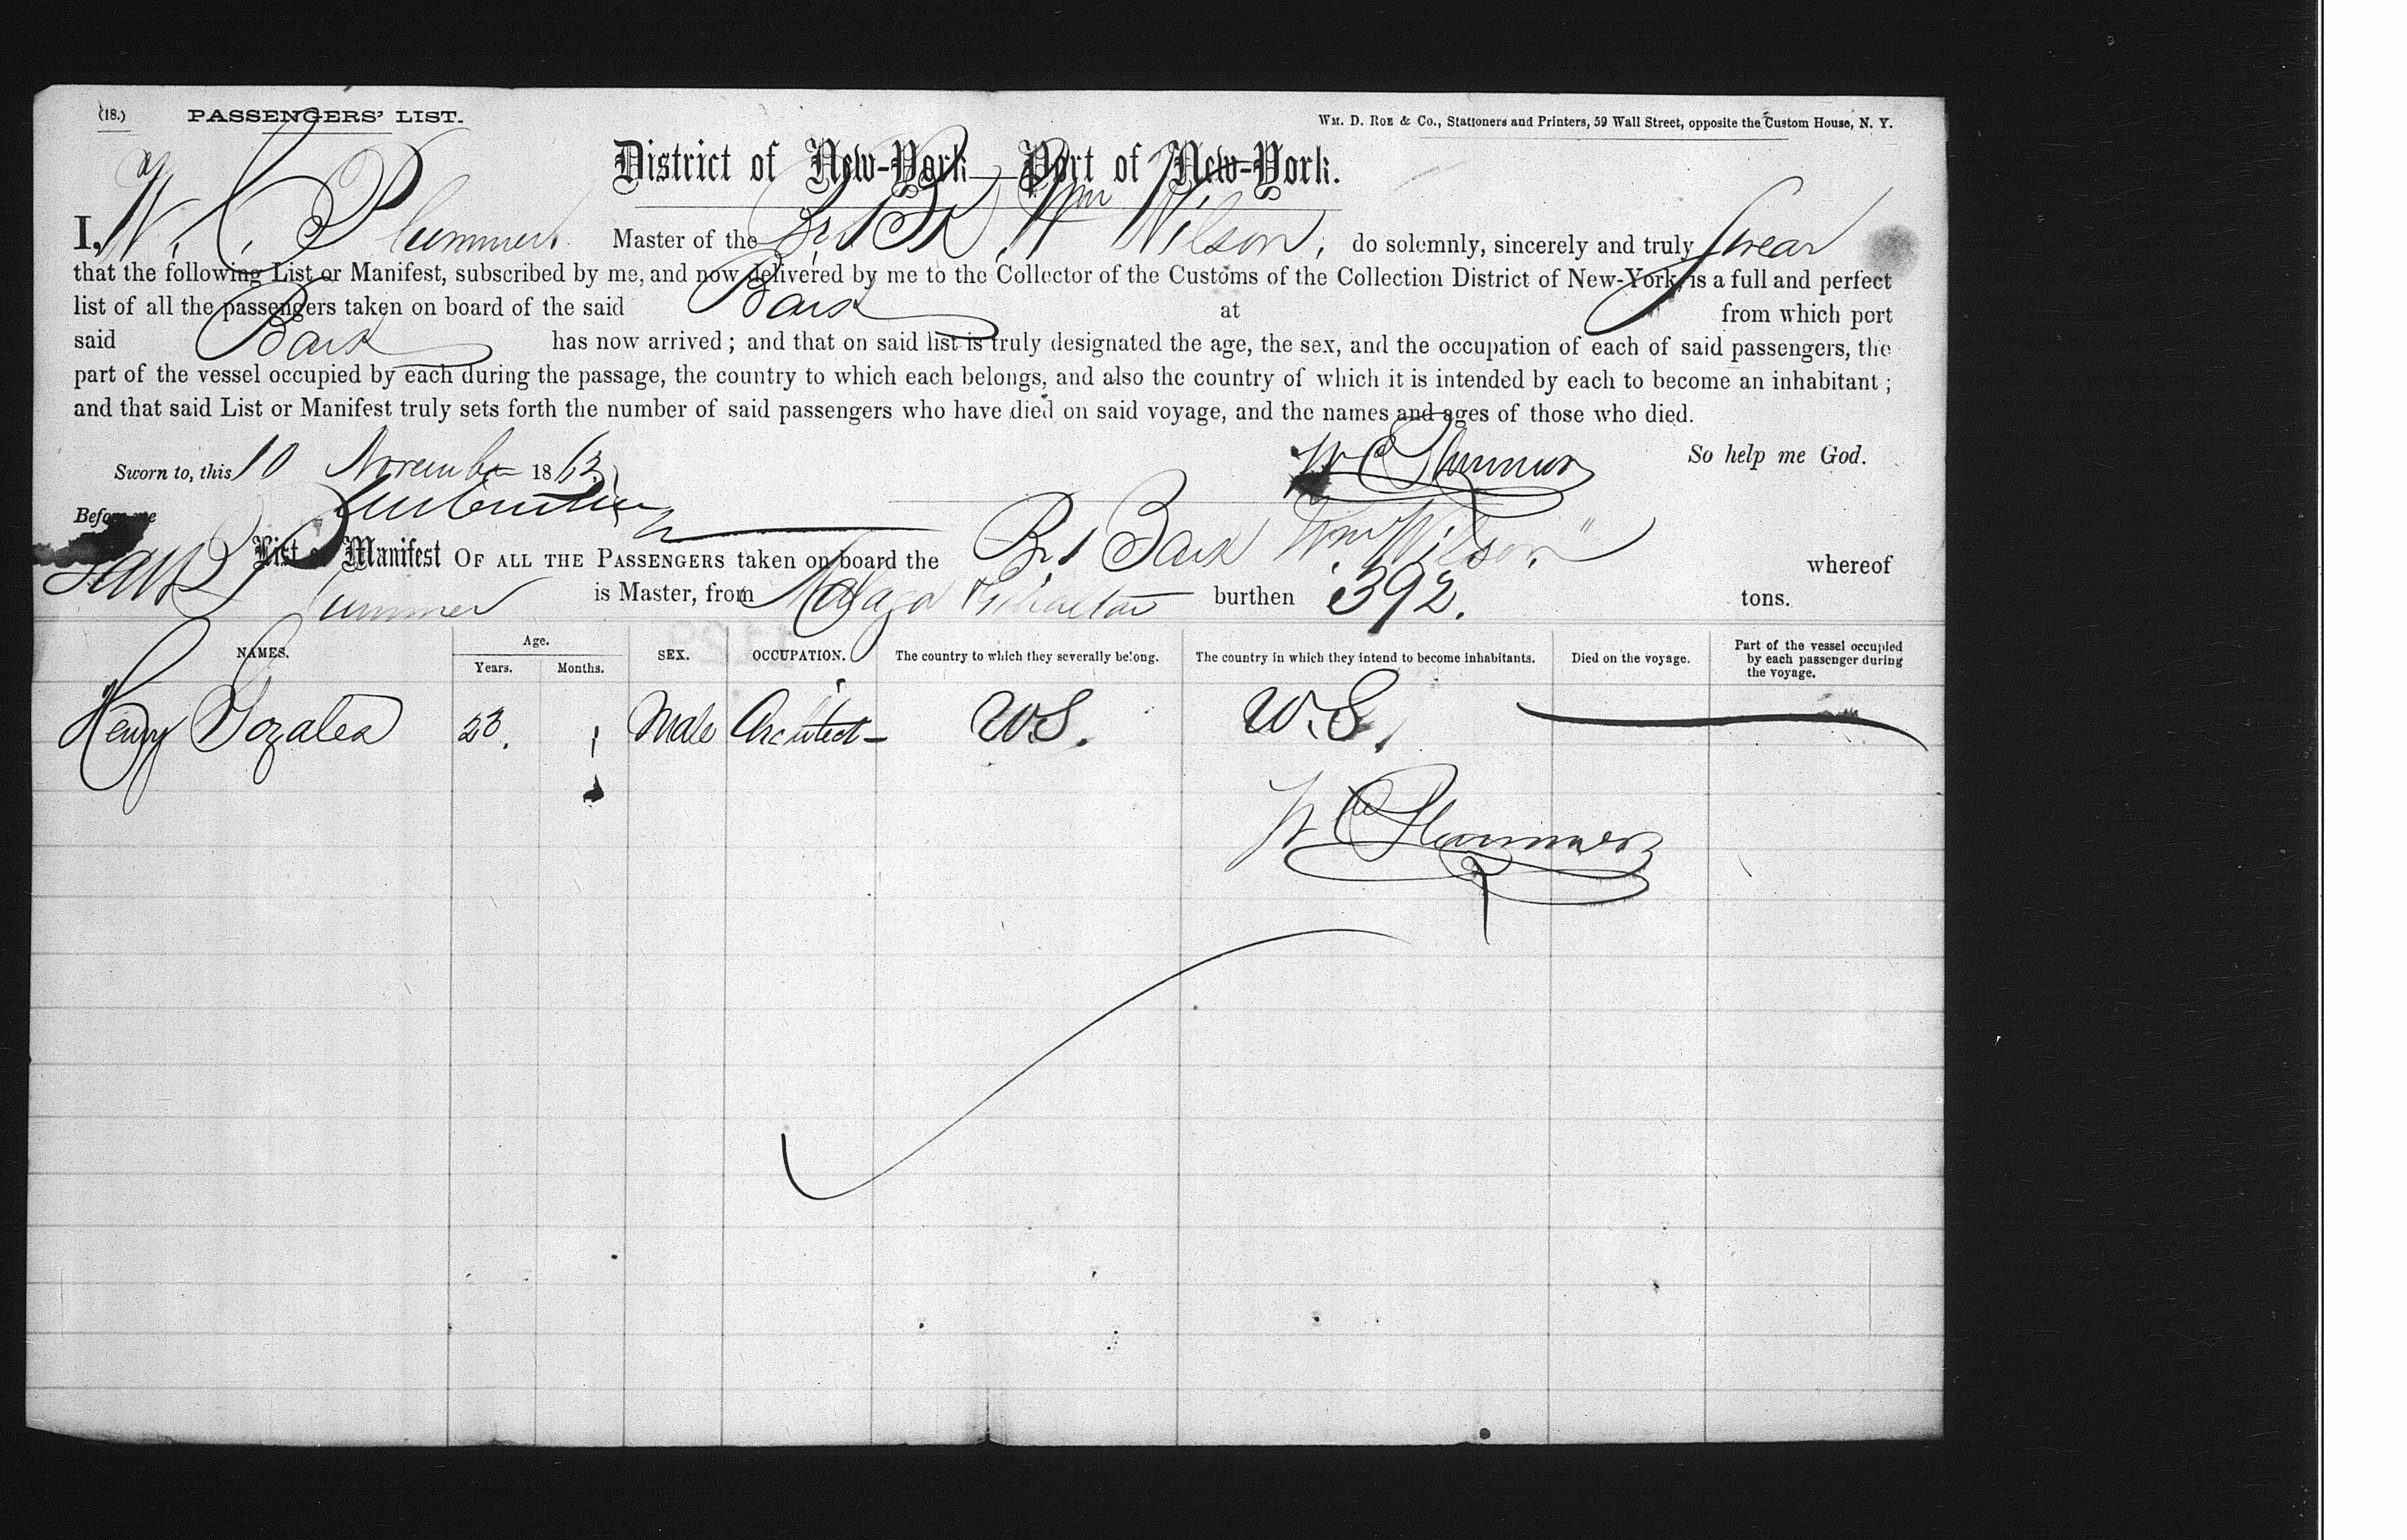 (18.) PASSENGERS' LIST. Wm. D. Roe & Co., Stationers and Printers, 59 Wall Street, opposite the Custom House, N. Y.
District of New-York—Port of New-York.
I, W. C. Plummer. Master of the Br Bk Wm Wilson, do solemnly, sincerely and truly swear
that the following List or Manifest, subscribed by me, and now delivered by me to the Collector of the Customs of the Collection District of New-York, is a full and perfect
list of all the passengers taken on board of the said Bark at from which port
said Bark has now arrived; and that on said list is truly designated the age, the sex, and the occupation of each of said passengers, the
part of the vessel occupied by each during the passage, the country to which each belongs, and also the country of which it is intended by each to become an inhabitant;
and that said List or Manifest truly sets forth the number of said passengers who have died on said voyage, and the names and ages of those who died.
Sworn to, this 10 November 1863 W C Plummer So help me God.
Before me
List or Manifest OF ALL THE PASSENGERS taken on board the Br Bark "Wm Wilson" whereof
Plummer is Master, from Malaga & Gibraltar burthen 392. tons.
NAMES. Age. Years. Months. SEX. OCCUPATION. The country to which they severally belong. The country in which they intend to become inhabitants. Died on the voyage. Part of the vessel occupied by each passenger during the voyage.
Henry Gozales 23. Male Architect U.S. U.S.
W C Plummer